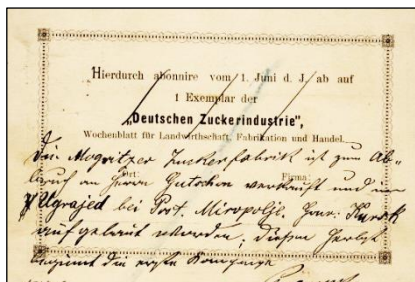 Hierdurch abonnire vom 1. Juni d. J. ab auf
1 Exemplar der
„Deutschen Zuckerindustrie",
Wochenblatt für Landwirthschaft, Fabrikation und Handel.
Die Mogritzer Zuckerfabrik ist zum Ab-
Ort: Firma:
bruch an Herrn Gutschen verkauft und in
Ugrajed bei Post. Miropolje. Gouv. Kursk
aufgebaut worden; diesen Herbst
beginnt die erste Kampagne